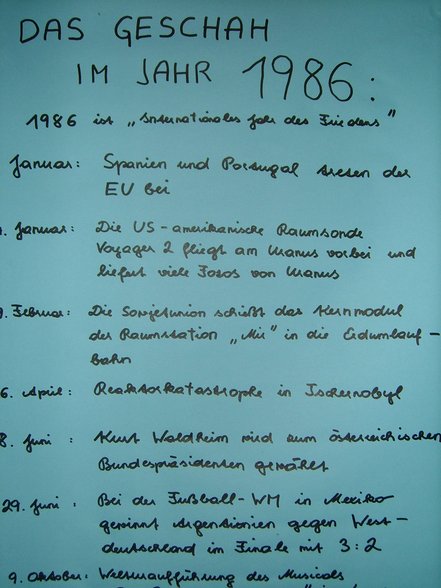 DAS GESCHAH
IM JAHR 1986:
1986 ist „Internationales Jahr des Friedens"
Januar: Spanien und Portugal treten der
EU bei
. Januar: Die US-amerikanische Raumsonde
Voyager 2 fliegt am Uranus vorbei und
liefert viele Fotos von Uranus
9. Februar: Die Sowjetunion schießt das Kernmodul
der Raumstation „Mir" in die Erdumlauf-
bahn
6. April: Reaktorkatastrophe in Tschernobyl
8. Juni: Kurt Waldheim wird zum österreichischen
Bundespräsidenten gewählt
29. Juni: Bei der Fußball-WM in Mexiko
gewinnt Argentinien gegen West-
deutschland im Finale mit 3:2
9. Oktober: Welturaufführung des Musicals